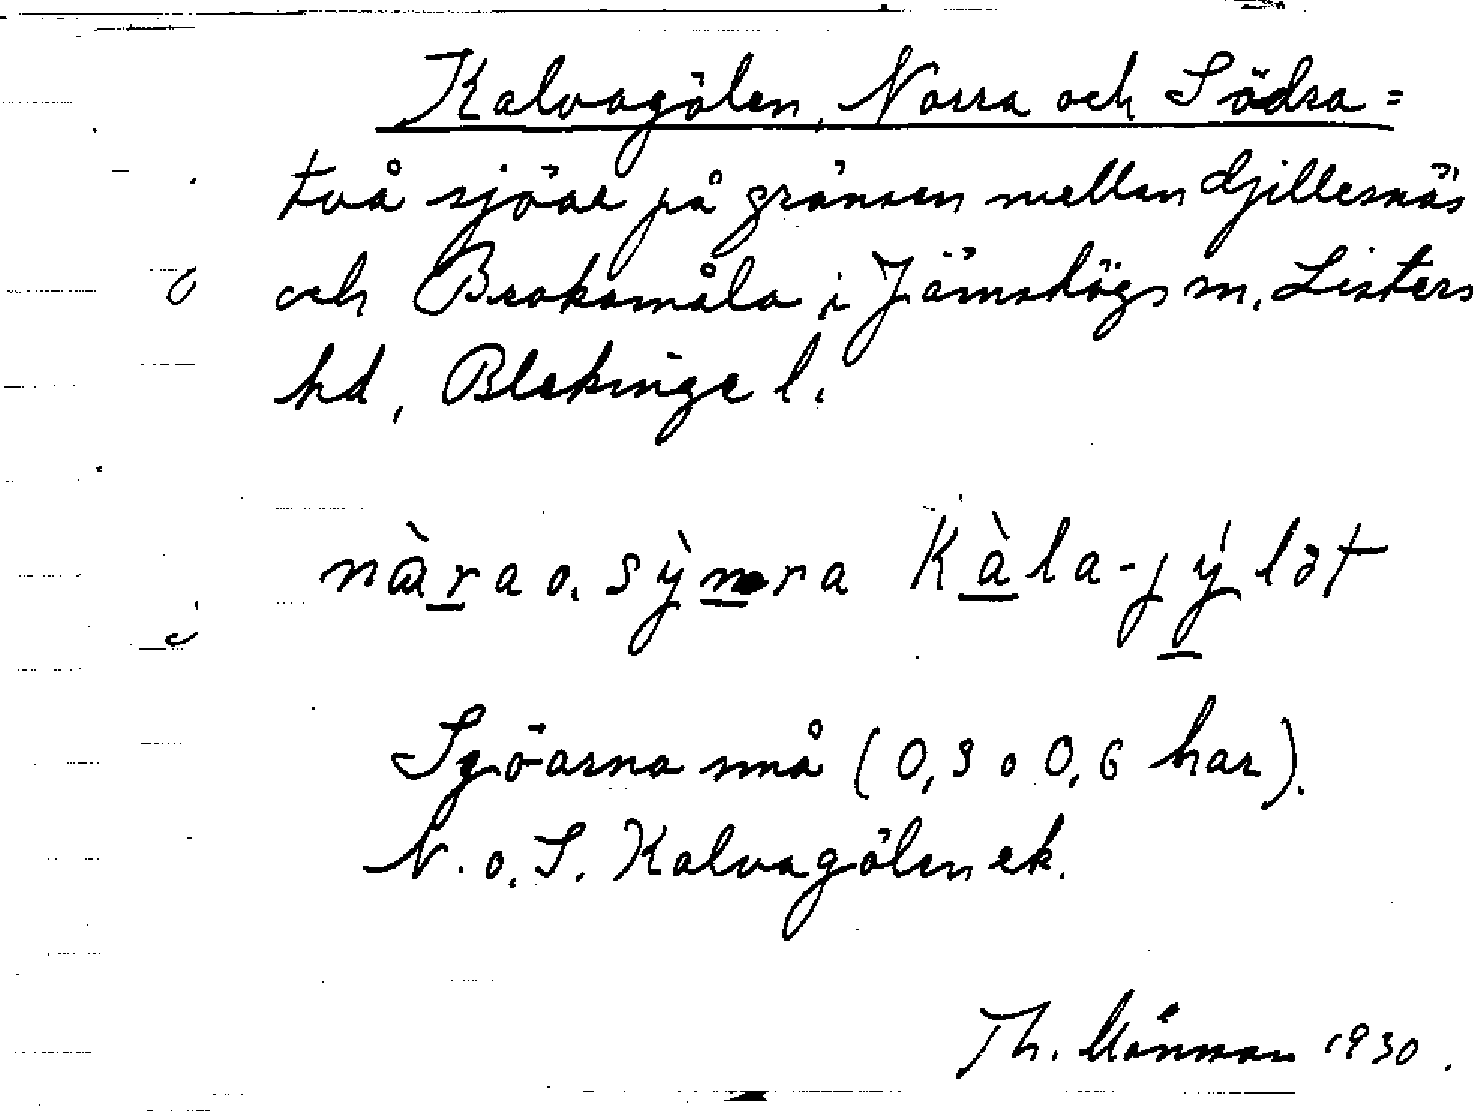 Kalvagölen, Norra och Södra =
två sjöar på gränsen mellan Djillesnäs
och Brokamåla i Jämshögs sn, Listers
hd, Blekinge l.
nàra o. sỳnra Kàla-jýlət
Sjöarna små (0,3 o 0,6 har).
N. o. S. Kalvagölen ek.
Th. 1930.